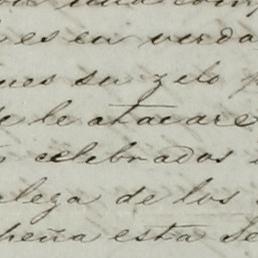 es en verda
ues su zelo
de le atacare
celebrados
alega de los
peña esta Se